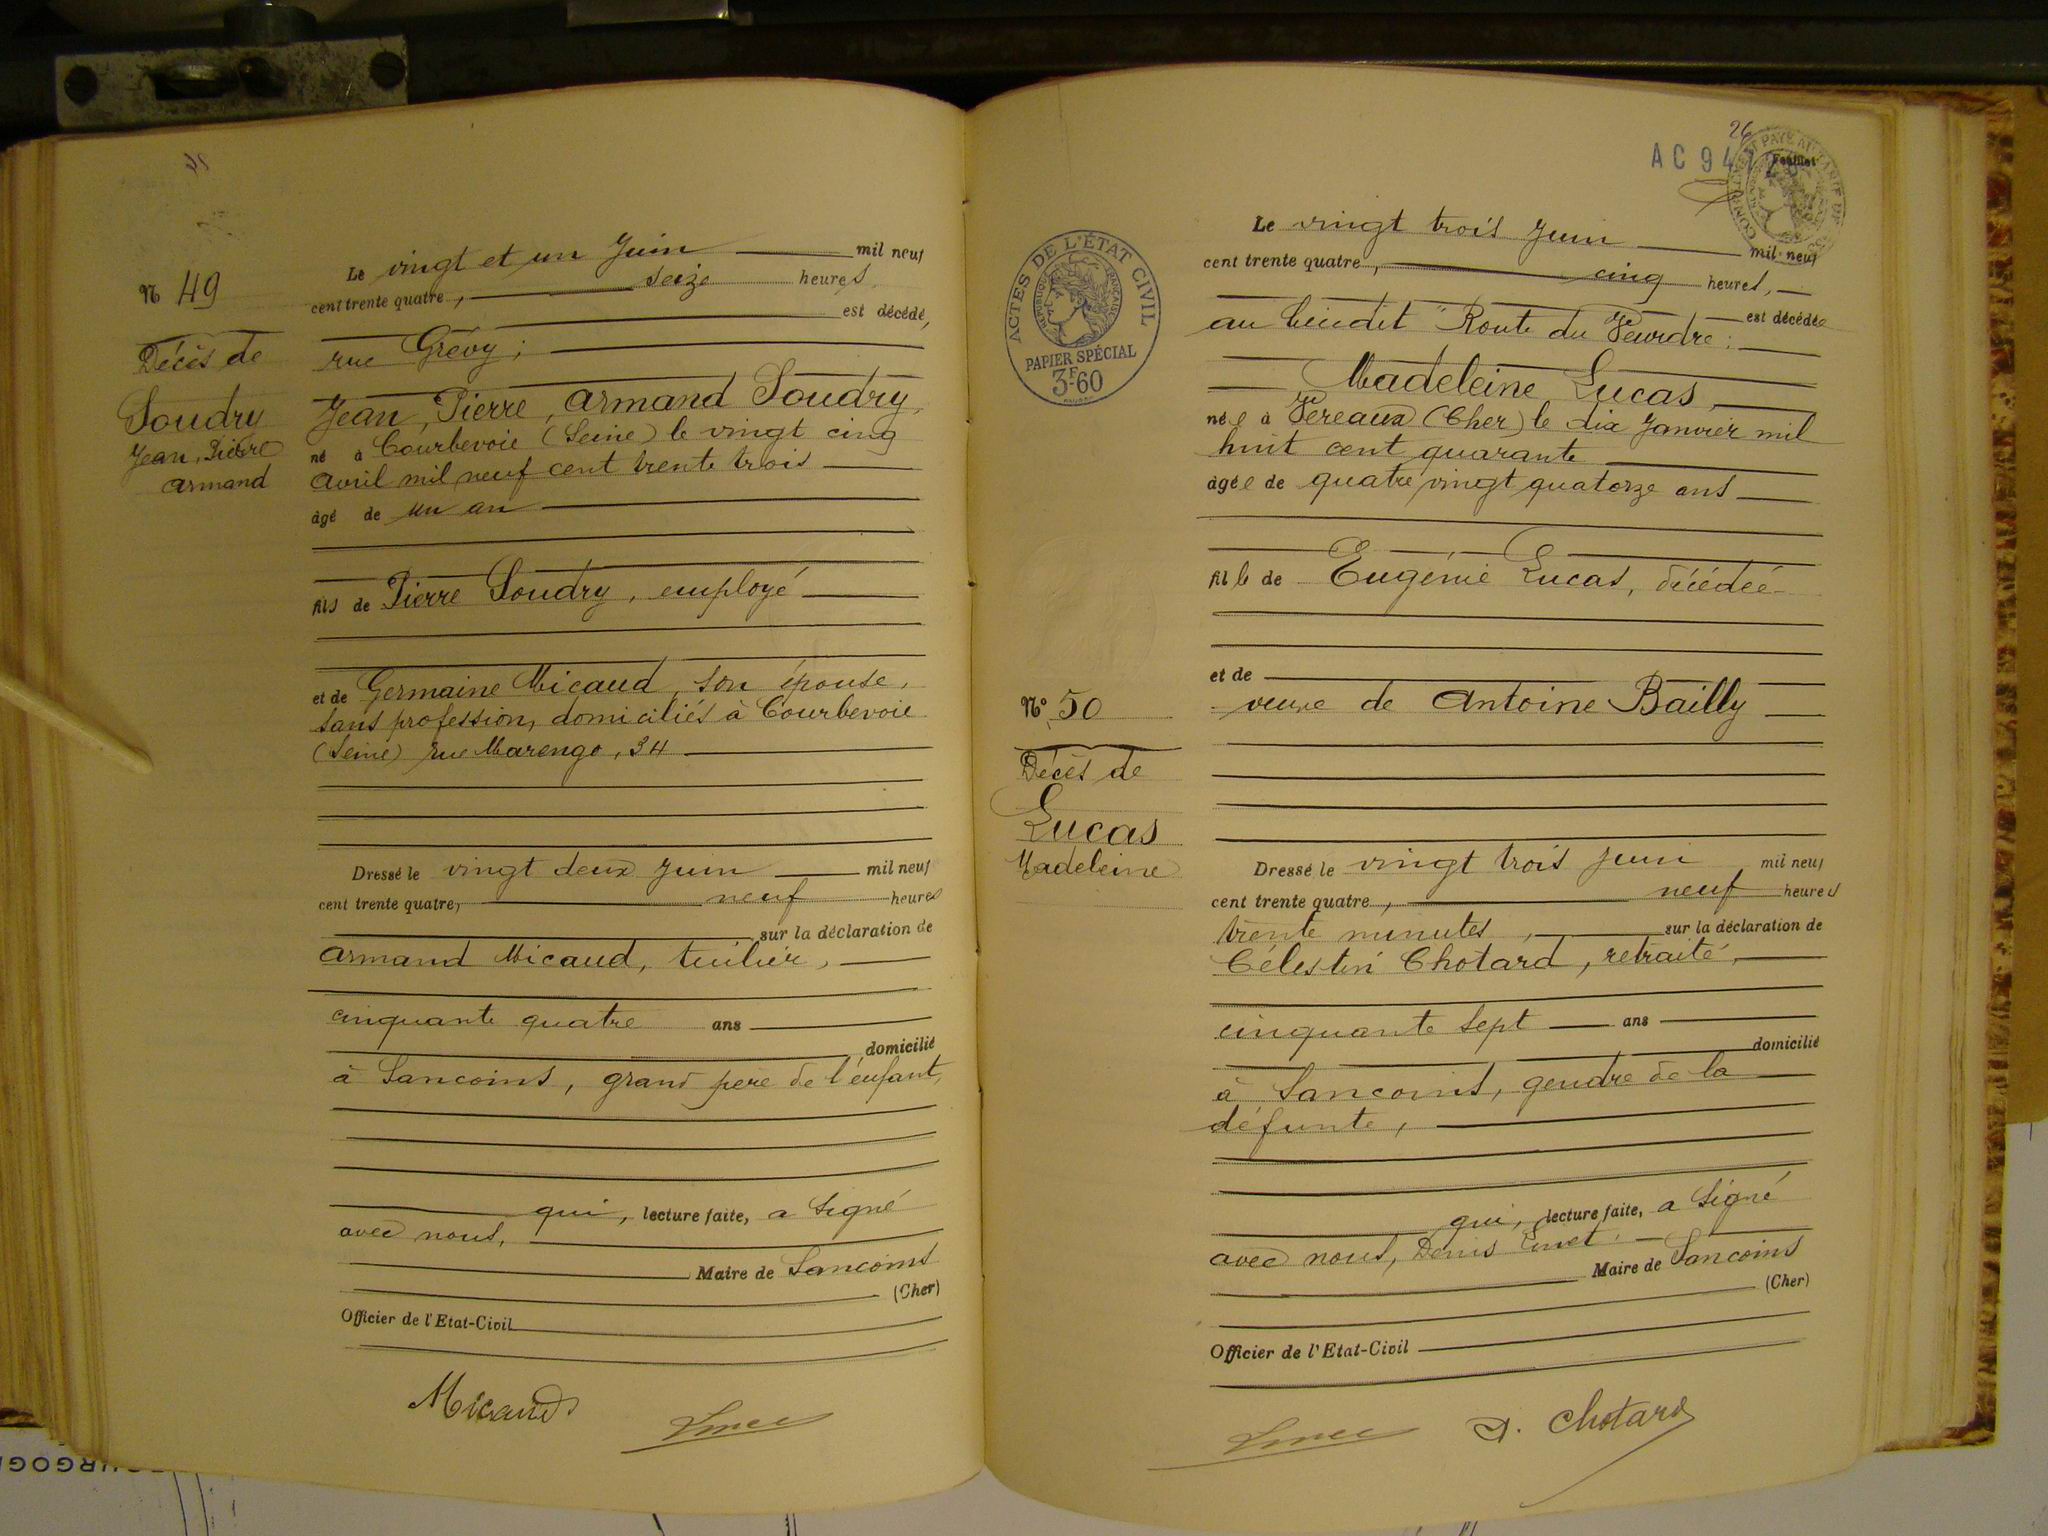 N 49
Décès de
Soudry
Jean, Pierre
Armand
Le vingt et un Juin mil neuf
cent trente quatre, seize heures,
est décédé,
rue Grévy ;
Jean, Pierre, Armand Soudry,
né à Courbevoie (Seine) le vingt cinq
Avril mil neuf cent trente trois
âgé de un an
fils de Pierre Soudry, employé
et de Germaine Micaud, son épouse,
sans profession, domiciliés à Courbevoie
(Seine) rue Marengo, 34
Dressé le vingt deux Juin mil neuf
cent trente quatre, neuf heures
sur la déclaration de
Armand Micaud, tuilier,
cinquante quatre ans
domicilié
à Sancoins, grand père de l'enfant,
qui, lecture faite, a signé
avec nous,
Maire de Sancoins
(Cher)
Officier de l'Etat-Civil
Micaud
26
AC 94
Feuillet
ACTES DE L'ÉTAT CIVIL
RÉPUBLIQUE FRANÇAISE
PAPIER SPÉCIAL
3F60
N° 50
Décès de
Lucas
Madeleine
Le vingt trois Juin mil neuf
cent trente quatre, cinq heures,
est décédée
au lieudit "Route du Veurdre :
Madeleine Lucas,
née à Vereaux (Cher) le dix Janvier mil
huit cent quarante
âgée de quatre vingt quatorze ans
fille de Eugénie Lucas, décédée
et de
veuve de Antoine Bailly
Dressé le vingt trois Juin mil neuf
cent trente quatre, neuf heures
trente minutes, sur la déclaration de
Célestin Chotard, retraité,
cinquante sept ans
domicilié
à Sancoins, gendre de la
défunte,
qui, lecture faite, a signé
avec nous, Denis
Maire de Sancoins
(Cher)
Officier de l'Etat-Civil
Chotard